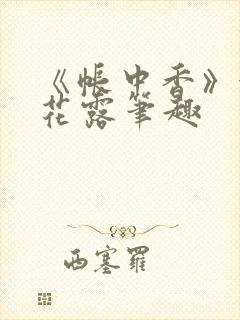 《帐中香》
花露笔趣
西塞罗